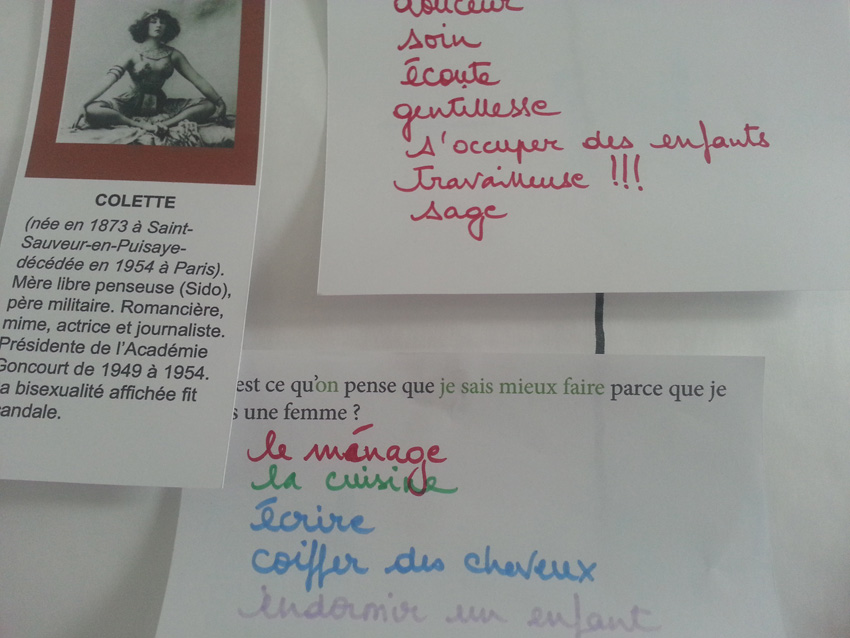 COLETTE
(née en 1873 à Saint-
Sauveur-en-Puisaye-
décédée en 1954 à Paris).
Mère libre penseuse (Sido),
père militaire. Romancière,
mime, actrice et journaliste.
Présidente de l'Académie
Goncourt de 1949 à 1954.
a bisexualité affichée fit
candale.
douceur
soin
écoute
gentillesse
s'occuper des enfants
travailleuse !!!
sage
est ce qu'on pense que je sais mieux faire parce que je
s une femme ?
le ménage
la cuisine
écrire
coiffer des cheveux
endormir un enfant